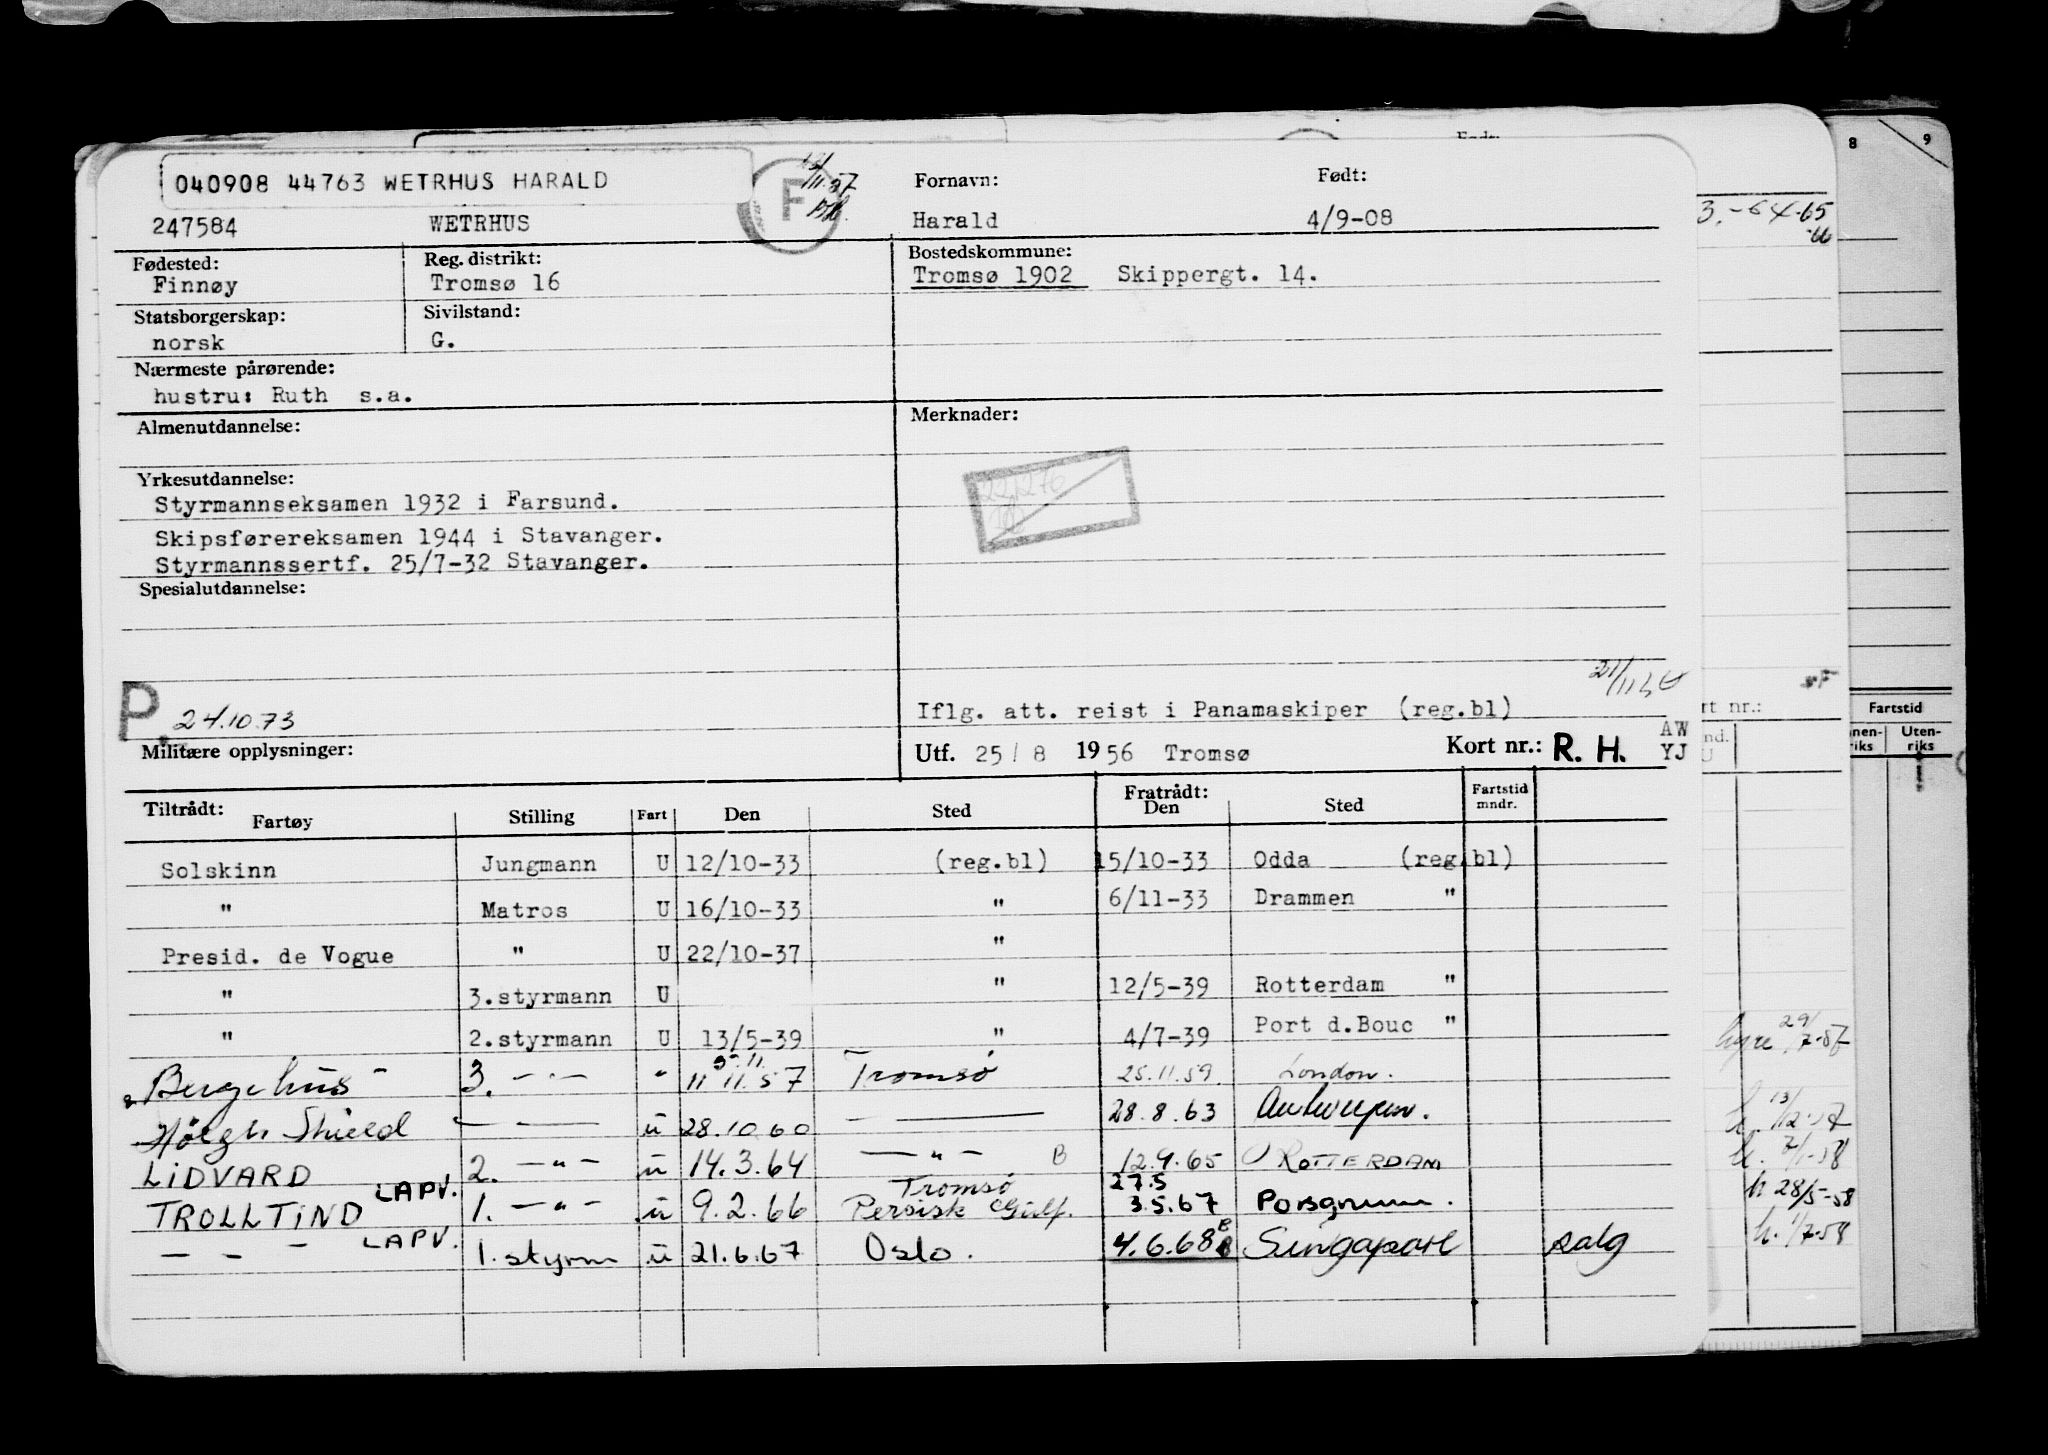 040908 44763 WETRHUS HARALD
F
Fornavn: Født:
247584 WETRHUS Harald 4/9-08
Fødested: Reg. distrikt: Bostedskommune:
Finnøy Tromsø 16 Tromsø 1902 Skippergt. 14.
Statsborgerskap: Sivilstand:
norsk G.
Nærmeste pårørende:
hustru: Ruth s.a.
Almenutdannelse: Merknader:
Yrkesutdannelse:
Styrmannseksamen 1932 i Farsund.
Skipsførereksamen 1944 i Stavanger.
Styrmannssertf. 25/7-32 Stavanger.
Spesialutdannelse:
P. 24.10.73
Iflg. att. reist i Panamaskiper (reg.bl)
Militære opplysninger: Utf. 25/8 1956 Tromsø Kort nr.: R. H. AW YJ
Tiltrådt: Fratrådt:
Fartøy Stilling Fart Den Sted Den Sted Fartstid mndr.
Solskinn Jungmann U 12/10-33 (reg.bl) 15/10-33 Odda (reg.bl)
" Matros U 16/10-33 " 6/11-33 Drammen "
Presid. de Vogue " U 22/10-37 "
" 3.styrmann U " 12/5-39 Rotterdam "
" 2.styrmann U 13/5-39 " 4/7-39 Port d.Bouc "
Bergehus 3. — " — " 11.11.57 Tromsø 25.11.59 London.
Höegh Shield — u 28.10.60 — 28.8.63 Antwerpen.
LIDVARD 2. — " — u 14.3.64 — " — B 12.9.65 ROTTERDAM
TROLLTIND LAPV. 1. — " — u 9.2.66 Tromsø Persisk Gulf. 27.5 3.5.67 Porsgrunn.
— — — LAPV. 1. styrm u 21.6.67 Oslo. 4.6.68 B Singapore salg
8 9
rt nr.:
Fartstid
Uten-
riks
h 28/5-58
h. 1/7-58